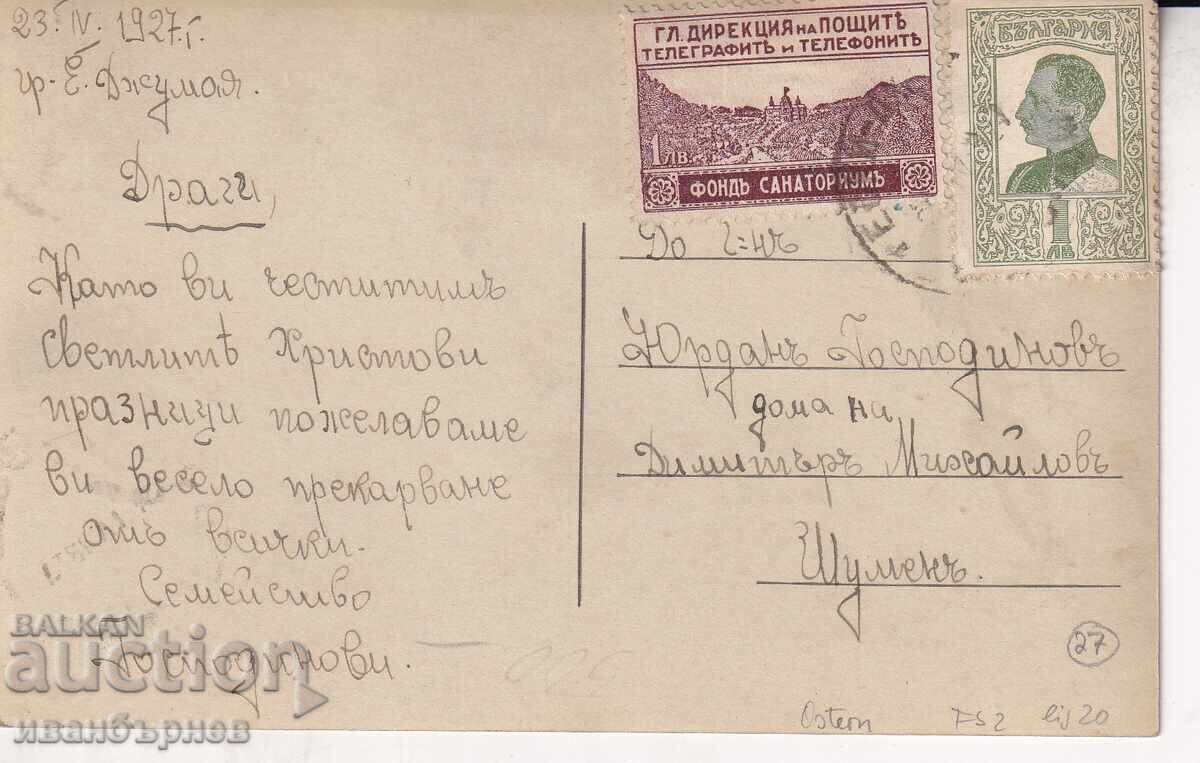 23. IV. 1927 г.
гр. Е. Джумая.
Драги,
Като ви честитимъ
Светлитѣ Христови
празници пожелаваме
ви весело прекарване
отъ всички.
Семейство
Господинови.
ГЛ. ДИРЕКЦИЯ НА ПОЩИТѢ
ТЕЛЕГРАФИТѢ И ТЕЛЕФОНИТѢ
1 ЛВ.
ФОНДЪ САНАТОРИУМЪ
БЪЛГАРИЯ
1
ЛВ
До Г-нъ
Юрданъ Господиновъ
дома на
Димитъръ Михайловъ
Шуменъ.
27
Ostern FS2
BALKAN
auction
иванбърнев